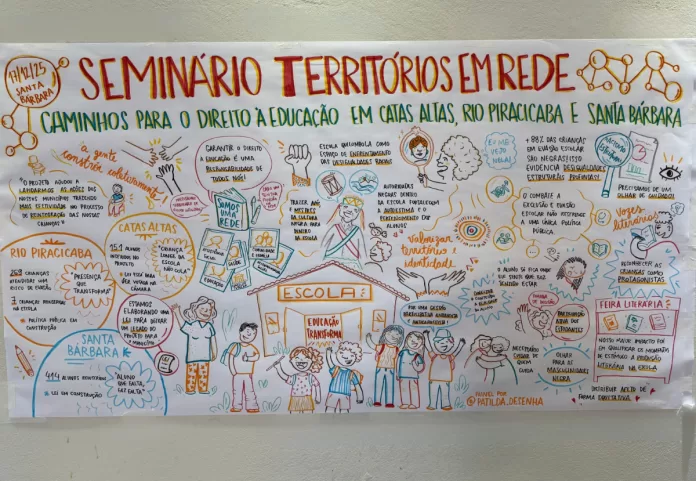 17/12/25
SANTA
BÁRBARA
SEMINÁRIO TERRITÓRIOS EM REDE
CAMINHOS PARA O DIREITO À EDUCAÇÃO EM CATAS ALTAS, RIO PIRACICABA E SANTA BÁRBARA
a gente
constrói coletivamente!
"O PROJETO AJUDOU A
AS AÇÕES DOS
NOSSOS MUNICÍPIOS TRAZENDO
MAIS EFETIVIDADE NO PROCESSO
DE REINTEGRAÇÃO DAS NOSSAS
CRIANÇAS"
GARANTIR O DIREITO
À EDUCAÇÃO É UMA
RESPONSABILIDADE DE
TODOS NÓS!
SOMOS
UMA
REDE
SAÚDE
EDUCAÇÃO
ESCOLA QUILOMBOLA COMO
ESPAÇO DE ENFRENTAMENTO
DAS DESIGUALDADES RACIAIS
TRAZER
E MESTRES
DA CULTURA
NEGRA PARA
DENTRO
DA ESCOLA
AUTORIDADES
NEGRAS DENTRO
DA ESCOLA FORTALECEM
A AUTOESTIMA E O
DOS
ALUNOS
EU ME
VEJO
NELA!
+ 88% DAS CRIANÇAS
EM EVASÃO ESCOLAR
SÃO NEGRAS! ISSO
EVIDENCIA DESIGUALDADES
ESTRUTURAIS
PRECISAMOS DE UM
OLHAR DE CUIDADO
O COMBATE A
EXCLUSÃO E EVASÃO
ESCOLAR NÃO RESPONDE
A UMA ÚNICA POLÍTICA
PÚBLICA.
Vozes
literárias
RECONHECER AS
CRIANÇAS COMO
PROTAGONISTAS
valorizar
território e
identidade
O ALUNO SÓ FICA ONDE
ELE SENTE QUE FAZ
SENTIDO ESTAR
RIO PIRACICABA
CRIANÇAS
ATENDIDAS EM
RISCO DE EVASÃO
7 CRIANÇAS
NA ESCOLA
POLÍTICA PÚBLICA EM
CONSTRUÇÃO
"PRESENÇA
QUE
TRANSFORMA"
CATAS ALTAS
151 ALUNOS
NO
PROJETO
LEI
SER VOTADA NA
CÂMARA
"CRIANÇA
LONGE DA
ESCOLA
NÃO COLA"
ESTAMOS
ELABORANDO UMA
LEI PARA DEIXAR
UM LEGADO DO
PROJETO PARA
O MUNICÍPIO
SANTA
BÁRBARA
414 ALUNOS
LEI EM CONSTRUÇÃO
"ALUNO
QUE FALTA,
FAZ FALTA"
ESCOLA
EDUCAÇÃO
TRANSFORMA
POR UMA GESTÃO
É NECESSÁRIO
CUIDAR DE
QUEM
CUIDA
PARTICIPAÇÃO
ATIVA DOS
ESTUDANTES
OLHAR
PARA AS
MASCULINIDADES
NEGRAS
FEIRA LITERÁRIA
NOSSO MAIOR IMPACTO FOI
EM QUALIFICAR OS MOMENTOS
DE ESTÍMULO À PRODUÇÃO
LITERÁRIA NA ESCOLA
DISTRIBUIR AFETO DE
FORMA
PAINEL POR
@PATILDA_DESENHA